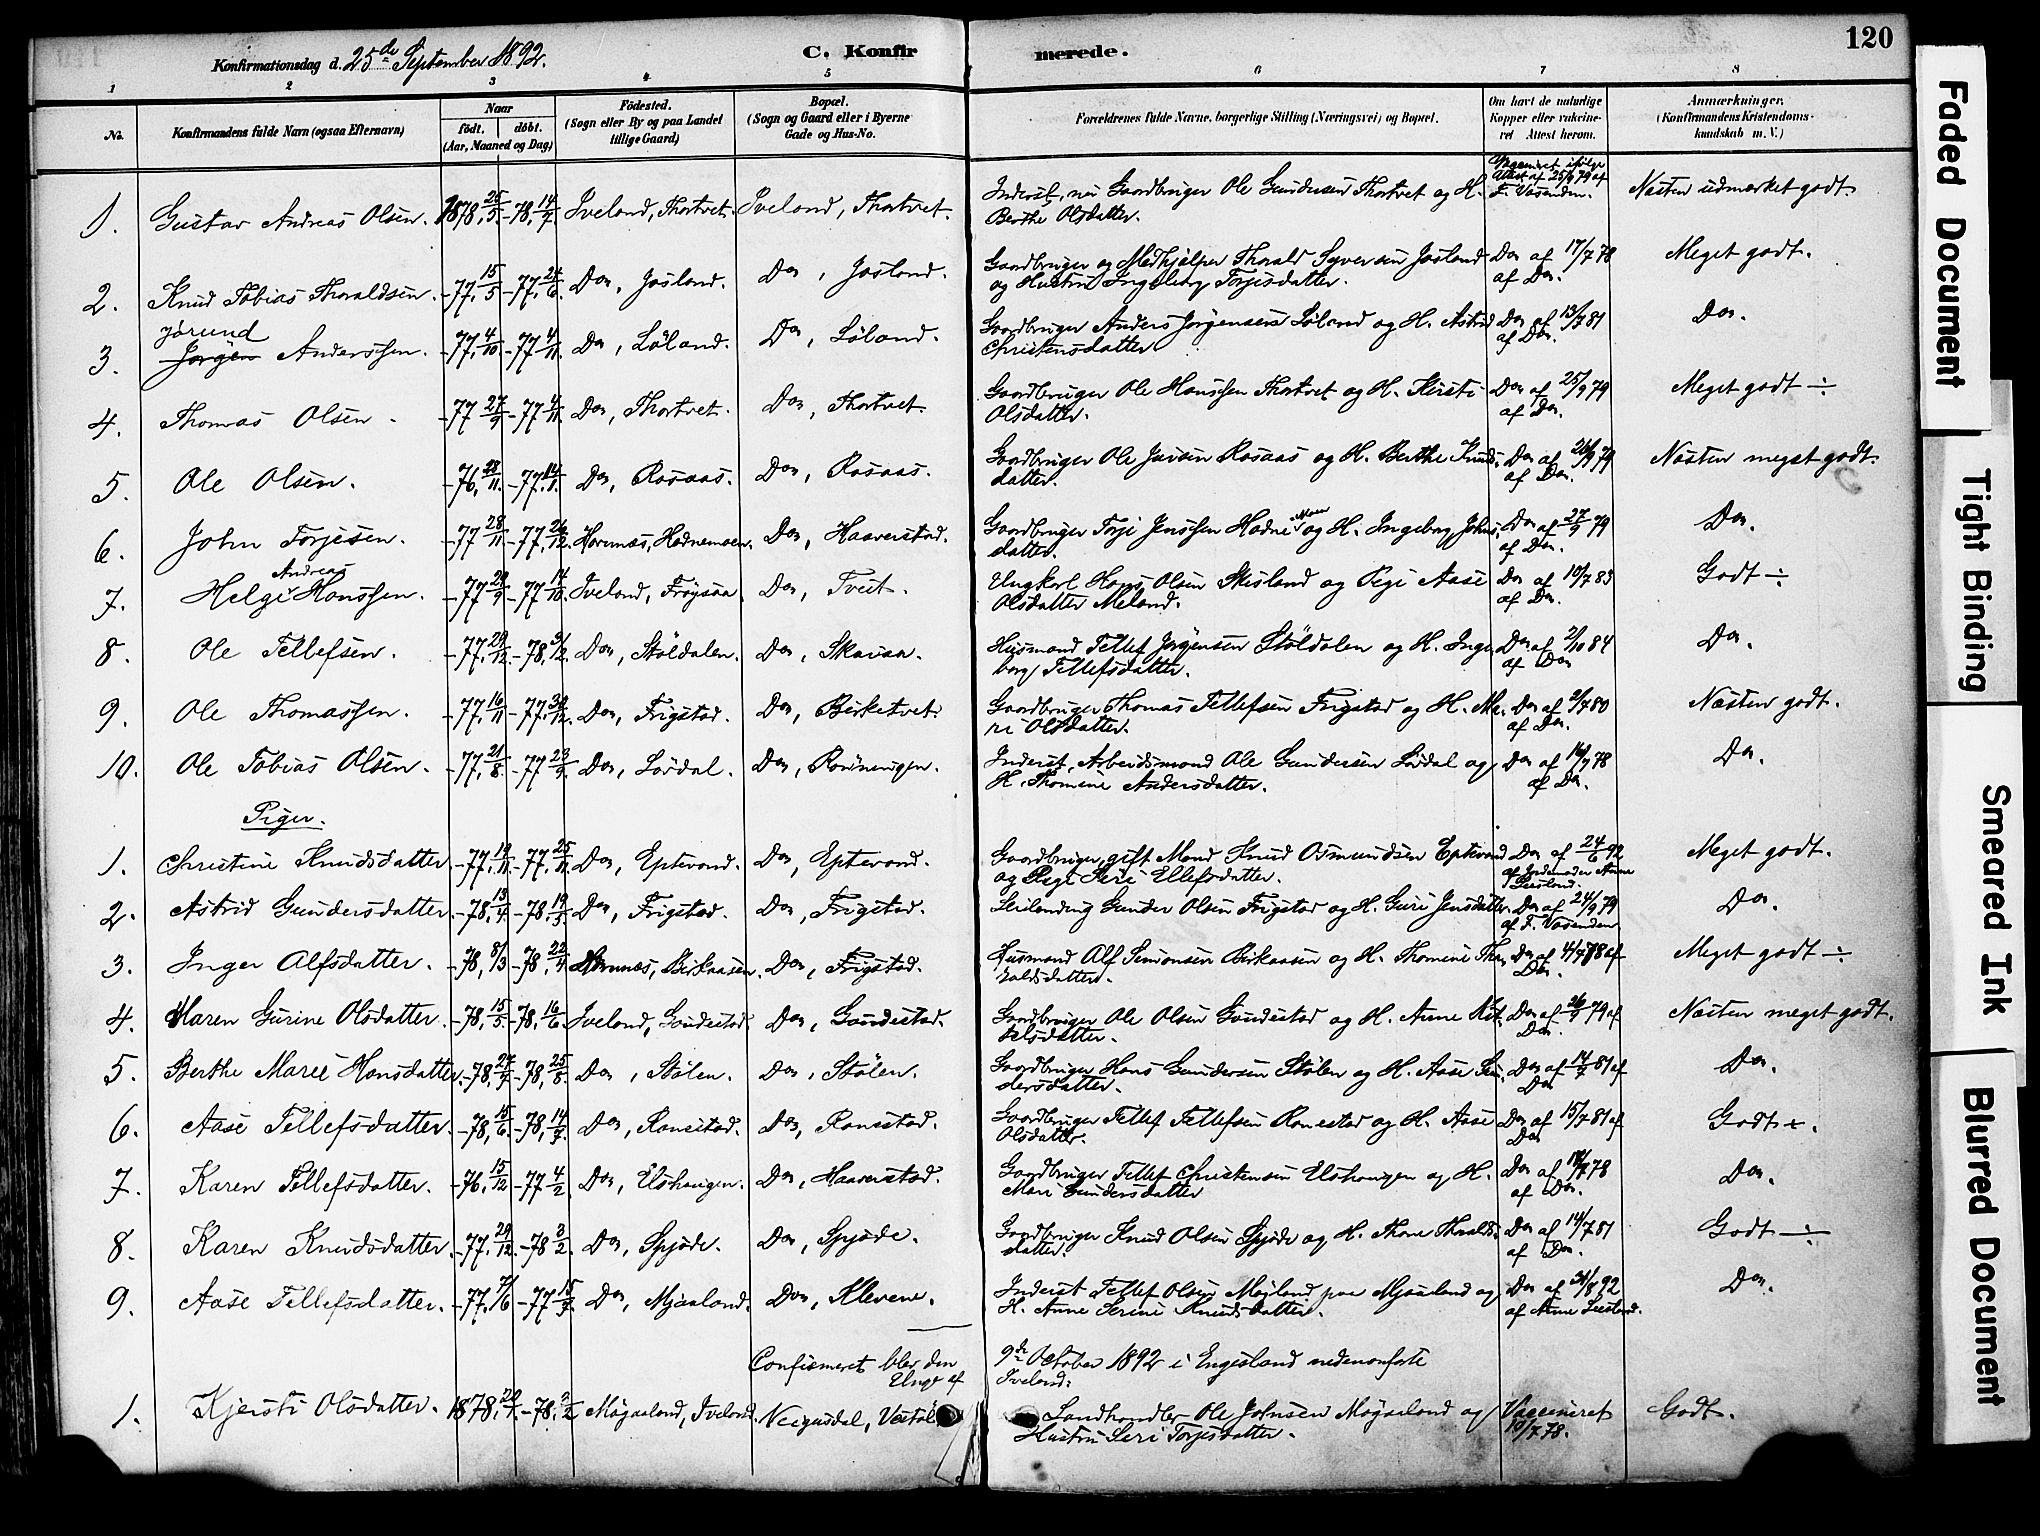 120
Konfirmationsdag d. 25de September 1892.
C. Konfirmerede.
1 2 3 4 5 6 7 8
No.
Konfirmandens fulde Navn (ogsaa Efternavn)
Naar
födt. döbt.
(Aar, Maaned og Dag)
Födested.
(Sogn eller By og paa Landet
tillige Gaard)
Bopæl.
(Sogn og Gaard eller i Byerne
Gade og Hus-No.
Forældrenes fulde Navne, borgerlige Stilling (Næringsvei) og Bopæl.
Om havt de naturlige
Kopper eller vaccine-
ret Attest herom.
Anmærkninger.
(Konfirmandens Kristendoms-
kundskab m. V.)
1. Gustav Andreas Olsen. 1878, 25/5 -78, 14/7. Iveland, Thortvet. Iveland, Thortvet. Inderst, nu Gaardbruger Ole Gundersen Thortvet og H. Berthe Olsdatter. Vaccineret ifölge Attest af 25/9 79 af F. Vasenden. Næsten udmærket godt.
2. Knud Tobias Thoraldsen. -77, 15/5 -77, 24/6. Do, Josland. Do, Josland. Gaardbruger og Medhjælper Thorald Syversen Josland og Hustru Ingeborg Torjisdatter. Do af 17/7 78 af Do. Meget godt.
3. Jörund Jörgen Anderssen. -77, 4/10 -77 4/11. Do, Löland. Do, Löland. Gaardbruger Anders Jörgensen Löland og H. Astrid Christensdatter Do af 13/7 81 af Do. Do.
4. Thomas Olsen. -77 27/9 -77 4/11. Do, Thortvet. Do, Thortvet. Gaardbruger Ole Hanssen Thortvet og H. Kirsti Olsdatter. Do af 25/9 79 af Do. Meget godt ÷
5. Ole Olsen. -76, 28/11 -77, 14/1. Do, Rosaas. Do, Rosaas. Gaardbruger Ole Jensen Rosaas og H. Berthe Knudsdatter. Do af 26/9 79 af Do. Næsten meget godt.
6. John Torjesen. -77 28/11 -77, 26/12. Hornnæs, Hodnemoen. Do, Haaverstad. Gaardbruger Torje Jenssen Hodnemoen og H. Ingeborg Johnsdatter. Do af 27/9 79 af Do. Do.
7. Helge Andreas Hanssen. -77 29/9 -77 14/10. Iveland, Frøysaa Do, Tveit. Ungkarl Hans Olsen Skisland og Pige Aase Olsdatter Meland. Do af 10/7 83 af Do. Godt ÷
8. Ole Tellefsen. -77, 29/12 -78, 9/2. Do, Stöldalen. Do, Skaiaa. Husmand Tellef Jörgensen Stöldalen og H. Ingeborg Tellefsdatter. Do af 2/10 84 af Do Do.
9. Ole Thomassen. -77, 16/11 -77, 30/12. Do, Frigstad. Do, Birketvet. Gaardbruger Thomas Tellefsen Frigstad og H. Mari Olsdatter. Do af 2/7 80 af Do. Næsten godt.
10. Ole Tobias Olsen. -77, 21/8 -77 23/9. Do, Lördal. Do, Rönningen. Inderst, Arbeidsmand Ole Gundersen Lördal og H. Thomine Andersdatter. Do af 16/7 78 af Do. Do.
Piger.
1. Christine Knudsdatter -77, 19/11 -77, 25/11. Do, Eptevand. Do, Eptevand. Gaardbruger, gift Mand Knud Osmundsen Eptevand og Pige Seri Ellefsdatter. Do af 24/6 92 af Jordemoder Anne Leisland. Meget godt.
2. Astrid Gundersdatter -78, 13/4 -78, 19/5. Do, Frigstad. Do, Frigstad. Leilending Gunder Olsen Frigstad og H. Guri Jensdatter. Do af 24/9 79 af F. Vasenden. Do.
3. Inger Alfsdatter. -78, 8/3 -78, 22/4. Hornnæs, Birkaasen. Do, Frigstad. Husmand Alf Simonsen Birkaasen og H. Thomine Thoraldsdatter. Do af 4/7 78 af Do. Meget godt ÷
4. Maren Gurine Olsdatter. -78, 15/5 -78, 16/6. Iveland, Gaudestad. Do, Gaudestad. Gaardbruger Ole Olsen Gaudestad og H. Anne Kittelsdatter. Do af 26/9 79 af Do. Næsten meget godt.
5. Berthe Marie Hansdatter. -78, 27/7 -78, 25/8. Do, Stölen. Do, Stölen. Gaardbruger Hans Gundersen Stölen og H. Aase Gundersdatter. Do af 14/7 81 af Do Do.
6. Aase Tellefsdatter. -78, 15/6 -78, 14/7. Do, Ranestad. Do, Ranestad. Gaardbruger Tellef Tellefsen Ranestad og H. Aase Olsdatter. Do af 15/7 81 af Do Godt +.
7. Karen Tellefsdatter. -76, 15/12 -77 4/2 Do, Elshaugen. Do, Haaverstad. Gaardbruger Tellef Christensen Elshaugen og H. Mari Gundersdatter Do af 18/7 78 af Do. Do.
8. Karen Knudsdatter. -77, 29/12 -78 3/2 Do, Spjöde. Do, Spjöde. Gaardbruger Knud Olsen Spjöde og H. Thone Thoraldsdatter. Do af 14/7 81 af Do. Godt ÷
9. Aase Tellefsdatter. -77, 7/6 -77 15/7 Do, Mjaaland. Do, Klevene. Inderst Tellef Olsen Mojland paa Mjaaland og H. Anne Serine Knudsdatter. Do af 31/8 92 af Anne Leisland. Do.
Confirmeret blev den 9de October 1892 i Engesland nedenanførte Unge af Iveland:
1. Kjersti Olsdatter. 1878, -78, 2/2 Mögaaland, Iveland. Landhandler Ole Johnsen Mögaaland og Hustru Seri Torjesdatter. Vaccineret 19/7 78. Godt.
Faded Document
Tight Binding
Smeared Ink
Blurred Document